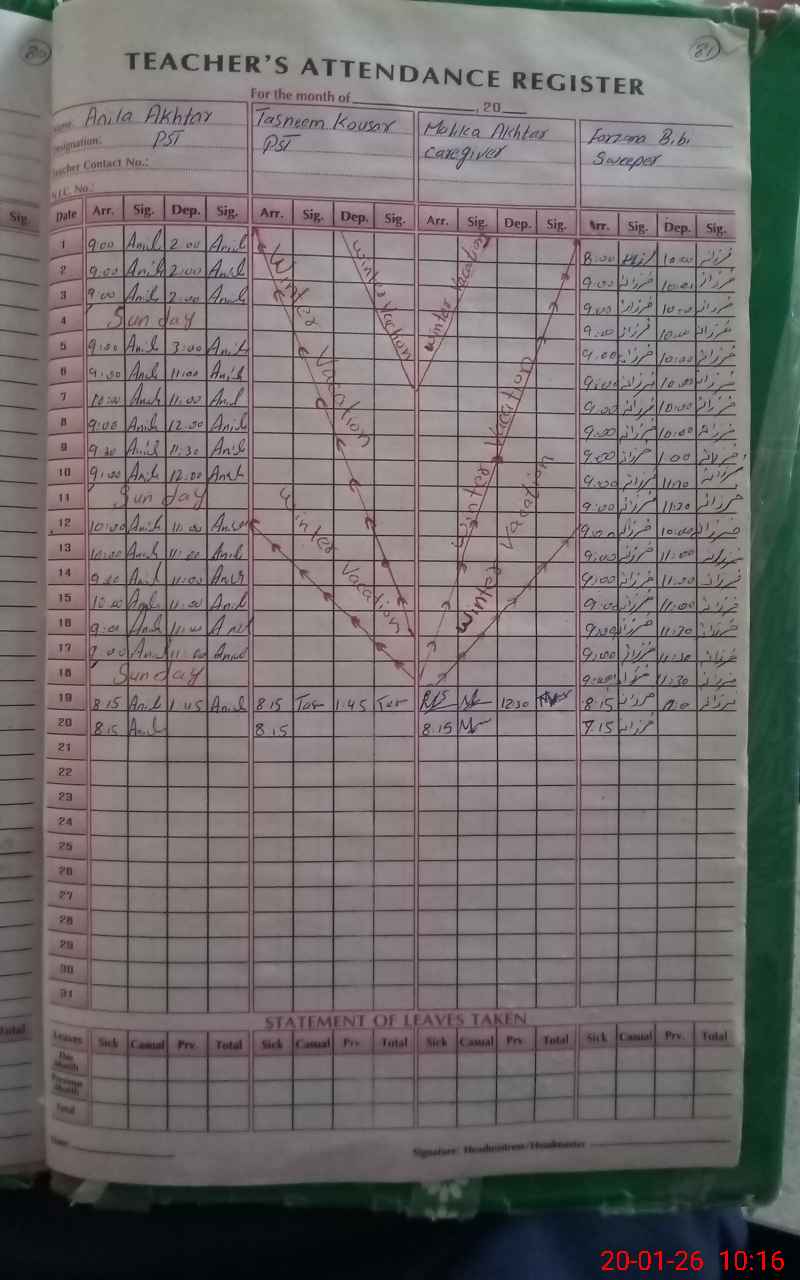 80
81
TEACHER'S ATTENDANCE REGISTER
For the month of , 20
Name: Anila Akhtar Tasneem Kousar Malika Akhtar Farzana Bibi
Designation: PST PST Caregiver Sweeper
Teacher Contact No.:
N.I.C. No.:
Sig. Date Arr. Sig. Dep. Sig. Arr. Sig. Dep. Sig. Arr. Sig. Dep. Sig. Arr. Sig. Dep. Sig.
1 9:00 Anil 2:00 Anil 8:00 فرزانہ 10:00 فرزانہ
2 9:00 Anil 2:00 Anil 9:00 فرزانہ 10:00 فرزانہ
3 9:00 Anil 2:00 Anil 9:00 فرزانہ 10:00 فرزانہ
4 Sunday 9:00 فرزانہ 10:00 فرزانہ
5 9:00 Anil 3:00 Anil 9:00 فرزانہ 10:00 فرزانہ
6 9:00 Anil 11:00 Anil 9:00 فرزانہ 10:00 فرزانہ
7 10:00 Anil 11:00 Anil 9:00 فرزانہ 10:00 فرزانہ
8 9:00 Anil 12:00 Anil 9:00 فرزانہ 10:00 فرزانہ
9 9:30 Anil 11:30 Anil 9:00 فرزانہ 1:00 فرزانہ
10 9:00 Anil 12:00 Anil 9:00 فرزانہ فرزانہ
11 Sunday 9:00 فرزانہ 11:20 فرزانہ
12 10:00 Anil 11:00 Anil 9:00 فرزانہ 10:00 فرزانہ
13 10:00 Anil 11:00 Anil 9:00 فرزانہ 11:00 فرزانہ
14 Anil 11:00 Anil 9:00 فرزانہ 11:00 فرزانہ
15 10:00 Anil 11:00 Anil 9:00 فرزانہ 11:00 فرزانہ
16 9:00 Anil 11:00 Anil 9:00 فرزانہ 11:20 فرزانہ
17 9:00 Anil 11:00 Anil 9:00 فرزانہ 11:30 فرزانہ
18 Sunday 9:00 فرزانہ 11:30 فرزانہ
Winter Vacation
Winter Vacation
Winter Vacation
Winter Vacation
Winter Vacation
Winter Vacation
19 8:15 Anil 1:45 Anil 8:15 Tas 1:45 Tas 12:30 8:15 فرزانہ فرزانہ
20 8:15 Anil 8:15 8:15 7:15 فرزانہ
21
22
23
24
25
26
27
28
29
30
31
STATEMENT OF LEAVES TAKEN
Total Leaves Sick Casual Prv. Total Sick Casual Prv. Total Sick Casual Prv. Total Sick Casual Prv. Total
This Month
Previous Month
Total
Signature: Headmistress/Headmaster
20-01-26 10:16